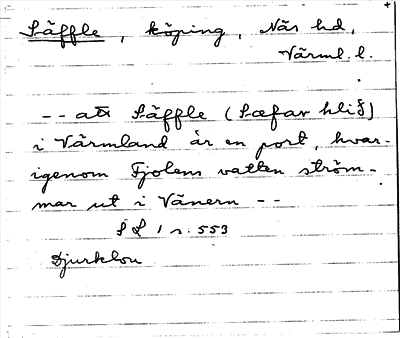 Säffle, köping, Näs hd,
Värml. l.
-- att Säffle (Sæfar hlið)
i Värmland är en port, hvar-
igenom Fjolens vatten ström-
mar ut i Vänern --
S L 1 s. 553
Djurklou